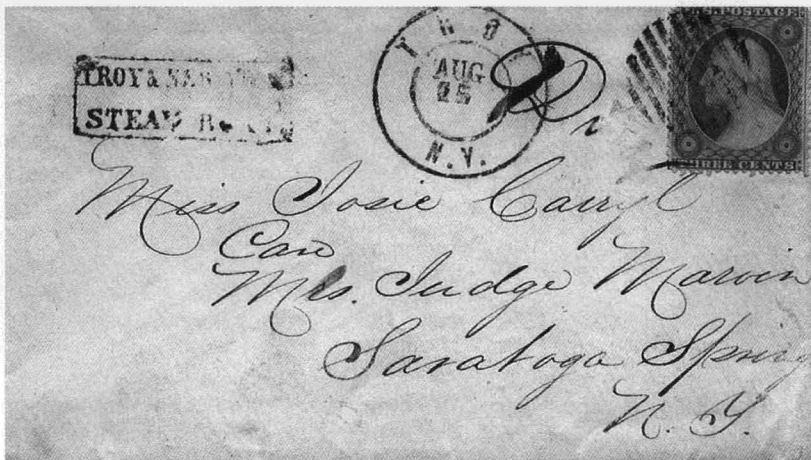 TROY &
STEAM
TRO
AUG
25
N.Y.
POSTAGE
THREE CENTS
Miss Josie Carryl
Care
Mrs. Judge Marvin
Saratoga Spring
N. Y.